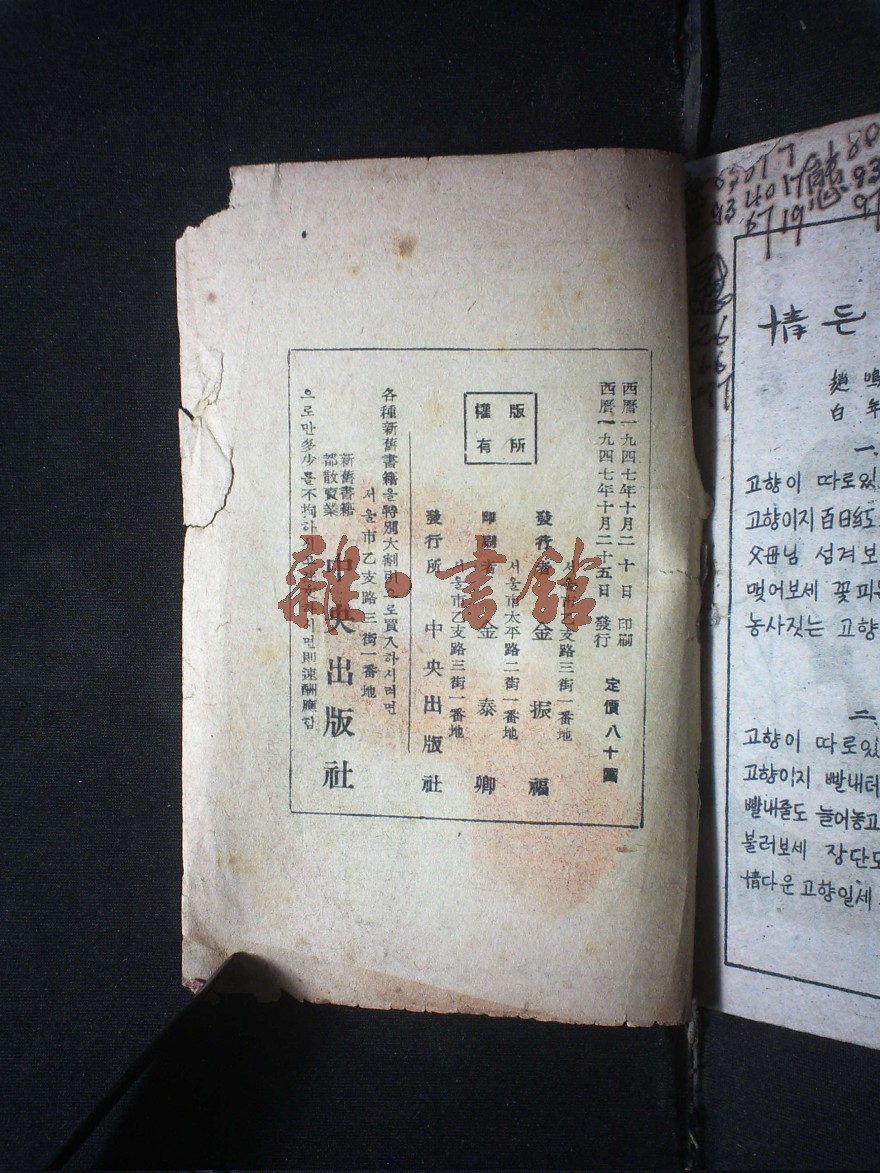 西曆一九四七年十月二十日 印刷
西曆一九四七年十月二十五日 發行
定價八十圓
版權所有
서울市乙支路三街一番地
發行者 金振福
서울市太平路二街一番地
印刷者 金泰卿
서울市乙支路三街一番地
發行所 中央出版社
各種新舊書籍을特別大割引으로買入하시려면
서울市乙支路三街一番地
新舊書籍
都散賣業
中央出版社
으로만多少를不拘하시고
하시면則速酬應함
雜·書館
情든
一.
고향이 따로있
고향이지 百日紅
父母님 섬겨보
맺어보세 꽃피는
농사짓는 고향
二.
고향이 따로있
고향이지 빨내터
빨내줄도 늘어놓고
불러보세 장단도
情다운 고향일세